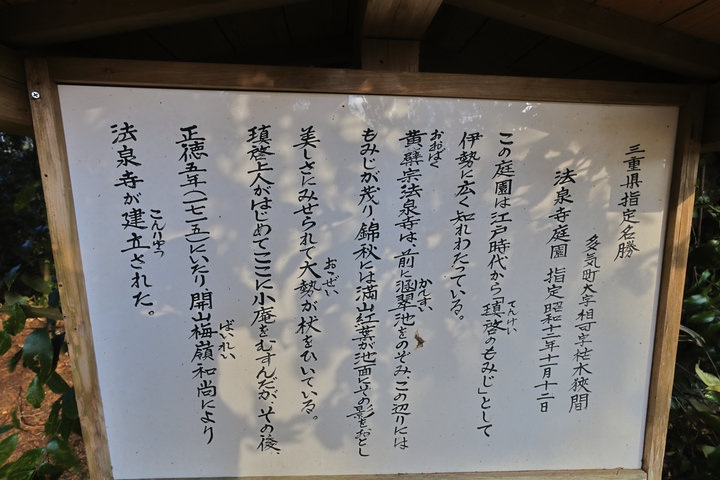 三重県指定名勝
多気町大字相可字柾木狭間
法泉寺庭園 指定昭和十二年十一月十二日
この庭園は江戸時代から「瑱啓のもみじ」として
てんけい
伊勢に広く知れわたっている。
黄檗宗法泉寺は、前に涵翠池をのぞみ、この辺りには
おおばく
かんすい
もみじが茂り、錦秋には満山紅葉が池面にその影をおとし
美しさにみせられて大勢が杖をひいている。
おおぜい
瑱啓上人がはじめてここに小庵をむすんだが、その後、
正徳五年(一七一五)にいたり、開山梅嶺和尚により
ばいれい
法泉寺が建立された。
こんりゅう